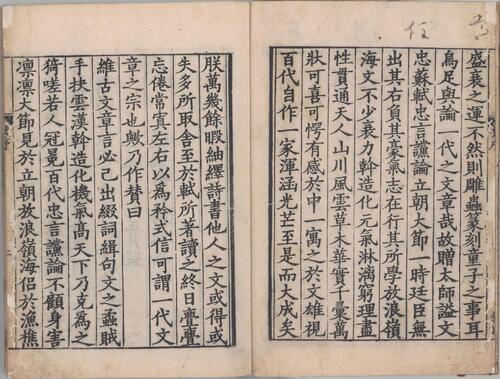 盛衰之運不然則雕蟲篆刻童子之事耳
烏足與論一代之文章哉故贈太師謚文
忠蘇軾忠言讜論立朝大節一時廷臣無
出其右負其豪氣志在行其所學放浪嶺
海文不少衰力斡造化元氣淋漓窮理盡
性貫通天人山川風雲草木華實千彙萬
狀可喜可愕有感於中一寓之於文雄視
百代自作一家渾涵光芒至是而大成矣
朕萬幾餘暇紬繹詩書他人之文或得或
失多所取舍至於軾所著讀之終日亹亹
忘倦常寘左右以為矜式信可謂一代文
章之宗也歟乃作贊曰
維古文章言必己出綴詞緝句文之蟊賊
手抉雲漢斡造化機氣高天下乃克為之
猗嗟若人冠冕百代忠言讜論不顧身害
凜凜大節見於立朝放浪嶺海侶於漁樵